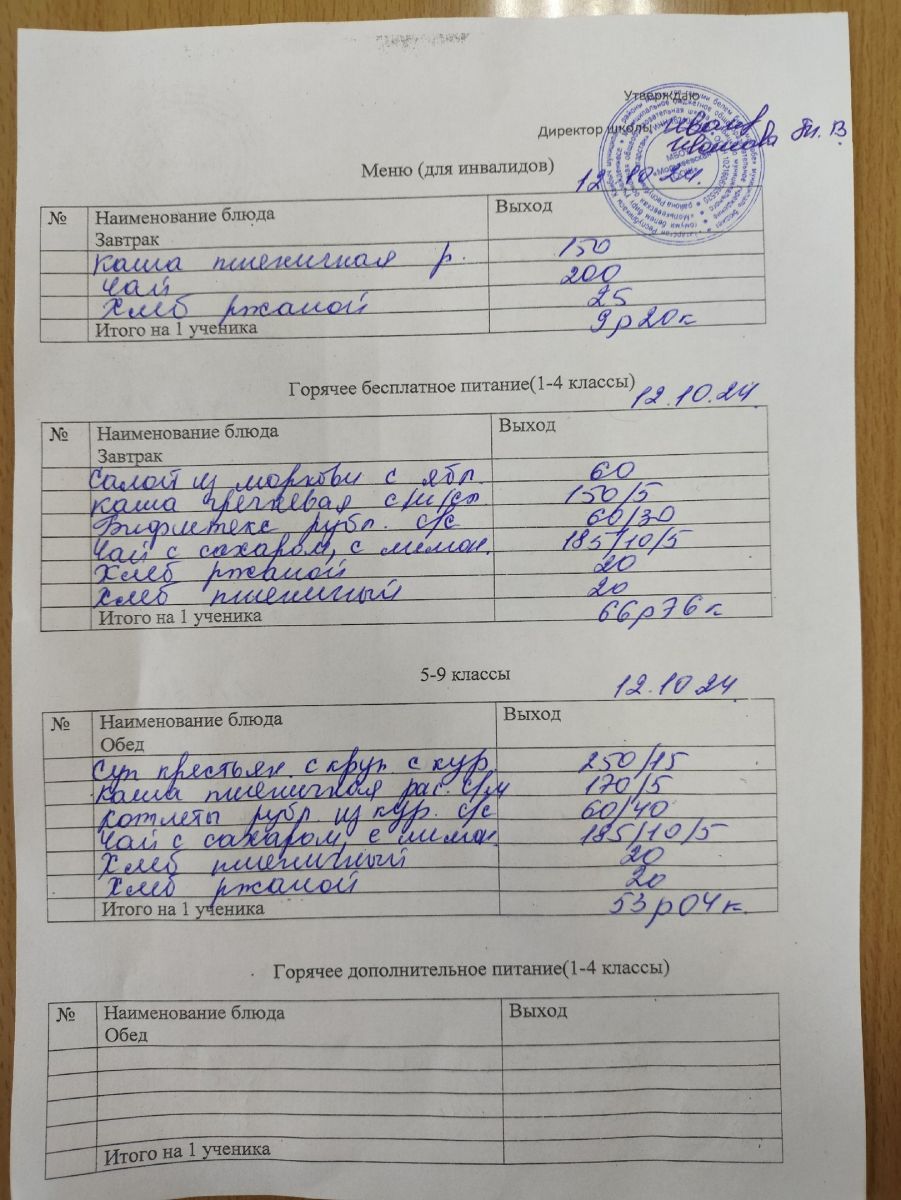 Утверждаю
Директор школы
Меню (для инвалидов)
12.10.24.
№ Наименование блюда Выход
Завтрак
Каша пшеничная р. 150
Чай 200
Хлеб ржаной 25
Итого на 1 ученика 9р20к
Горячее бесплатное питание(1-4 классы)
12.10.24.
№ Наименование блюда Выход
Завтрак
Салат из моркови с ябл. 60
Каша гречневая с/м/сл 150/5
Бифштекс рубл. с/с 60/30
Чай с сахаром, с лимон. 185/10/5
Хлеб ржаной 20
Хлеб пшеничный 20
Итого на 1 ученика 66р76к
5-9 классы
12.10.24
№ Наименование блюда Выход
Обед
Суп крестьян. с круп. с кур. 250/15
Каша пшеничная рас. с/м 170/5
Котлеты рубл из кур. с/с 60/40
Чай с сахаром, с лимон. 185/10/5
Хлеб пшеничный 20
Хлеб ржаной 20
Итого на 1 ученика 53р04к.
Горячее дополнительное питание(1-4 классы)
№ Наименование блюда Выход
Обед
Итого на 1 ученика